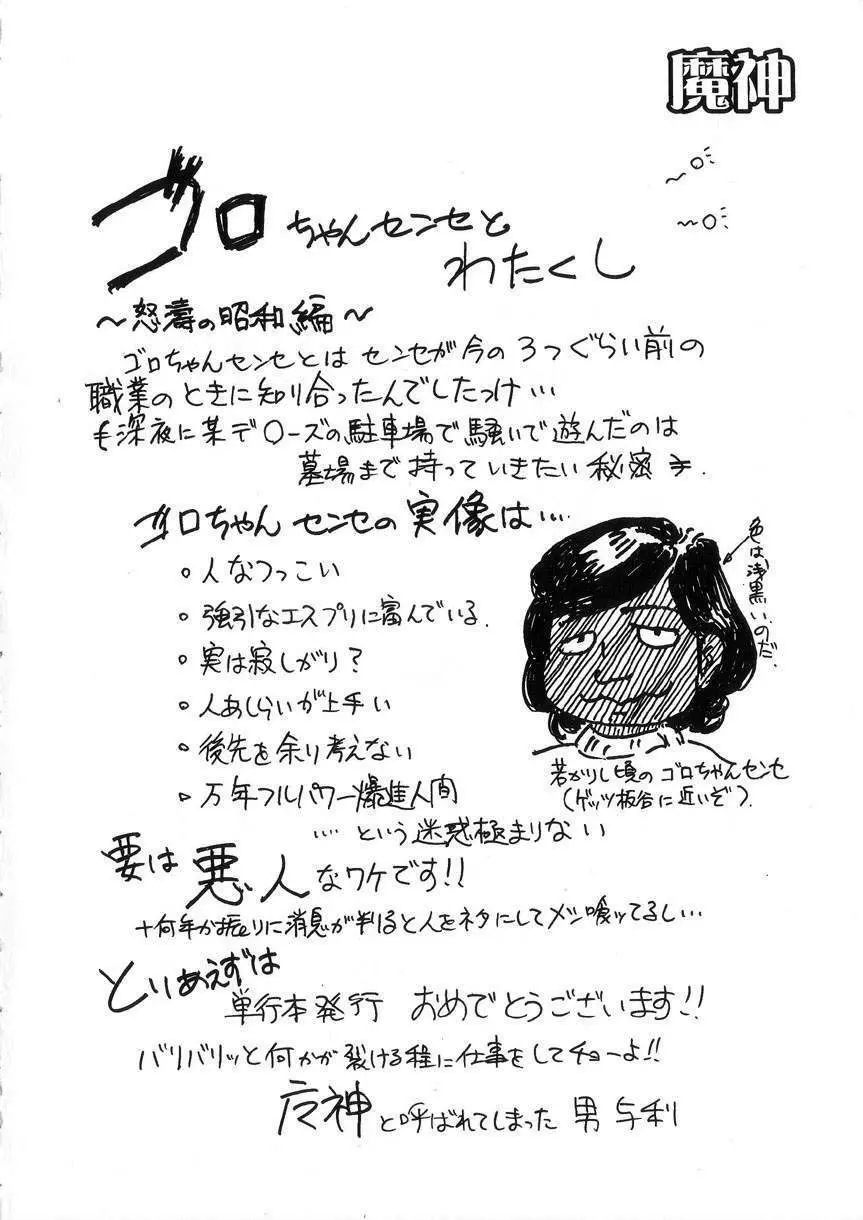 魔神
ゴロちゃんセンセと
わたくし
～怒濤の昭和編～
ゴロちゃんセンセとは センセが今の3つぐらい前の
職業のときに知り合ったんでしたっけ…
深夜に某デ〇ーズの駐車場で騒いで遊んだのは
墓場まで持っていきたい秘密
ゴロちゃんセンセの実像は…
色は浅黒いのだ.
○人なつっこい
○強引なエスプリに富んでいる.
○実は寂しがり?
○人あしらいが上手い
○後先を余り考えない
▷万年フルパワー爆進人間
若かりし頃のゴロちゃんセンセ
(ゲッツ板谷に近いぞ).
…という迷惑極まりない
要は悪人なワケです!!
十何年か振りに消息が判ると人をネタにしてメシ喰ッてるし…
とりあえずは
単行本発行 おめでとうございます!!
バリバリッと何かが裂ける程に仕事をしてチョーよ!!
广マ神と呼ばれてしまった男 与利